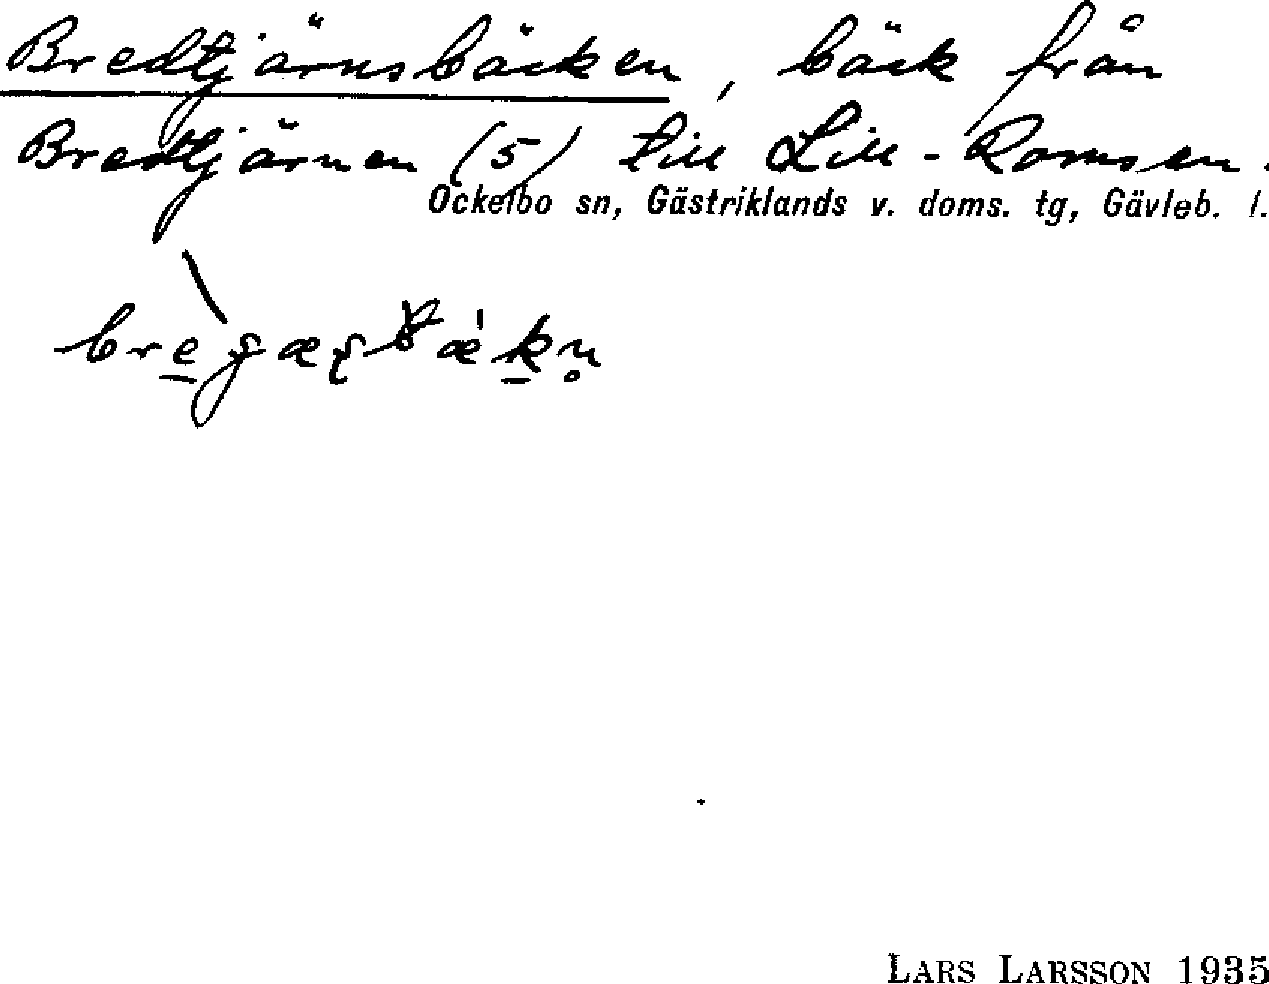 Bredtjärnsbäcken, bäck från
Bredtjärnen (5) till Lill-Romsen.
Ockelbo sn, Gästriklands v. doms. tg, Gävleb. l.
LARS LARSSON 1935